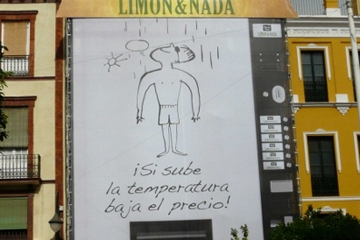 LIMON&NADA
¡Si sube
la temperatura
baja el precio!